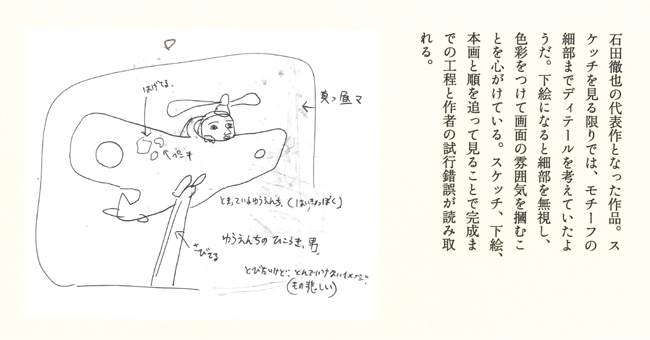 石田徹也の代表作となった作品。ス
ケッチを見る限りでは、モチーフの
細部までディテールを考えていたよ
うだ。下絵になると細部を無視し、
色彩をつけて画面の雰囲気を摑むこ
とを心がけている。スケッチ、下絵、
本画と順を追って見ることで完成ま
での工程と作者の試行錯誤が読み取
れる。
はげてる
ペンキ
とまっているゆうえんち、(はいきょっぽく)
ゆうえんちのひこうき、男、
さびてる
(もの悲しい)